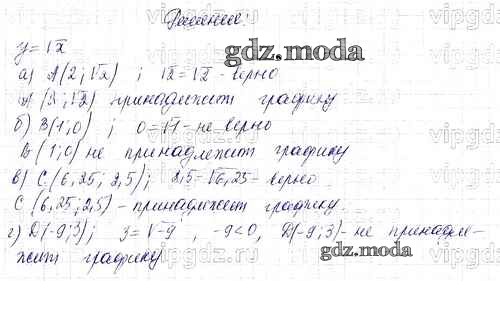 Решение:
y=√x
а) A(2;√2) ; √2=√2 - верно
A(2;√2) принадлежит графику
б) B(1;0) ; 0=√1 - не верно
B(1;0) не принадлежит графику
в) C(6,25; 2,5); 2,5=√6,25 - верно
C(6,25; 2,5) - принадлежит графику.
г) D(-9;3); 3=√-9 , -9<0, D(-9;3) - не принадле-
жит графику
gdz.moda
gdz.moda